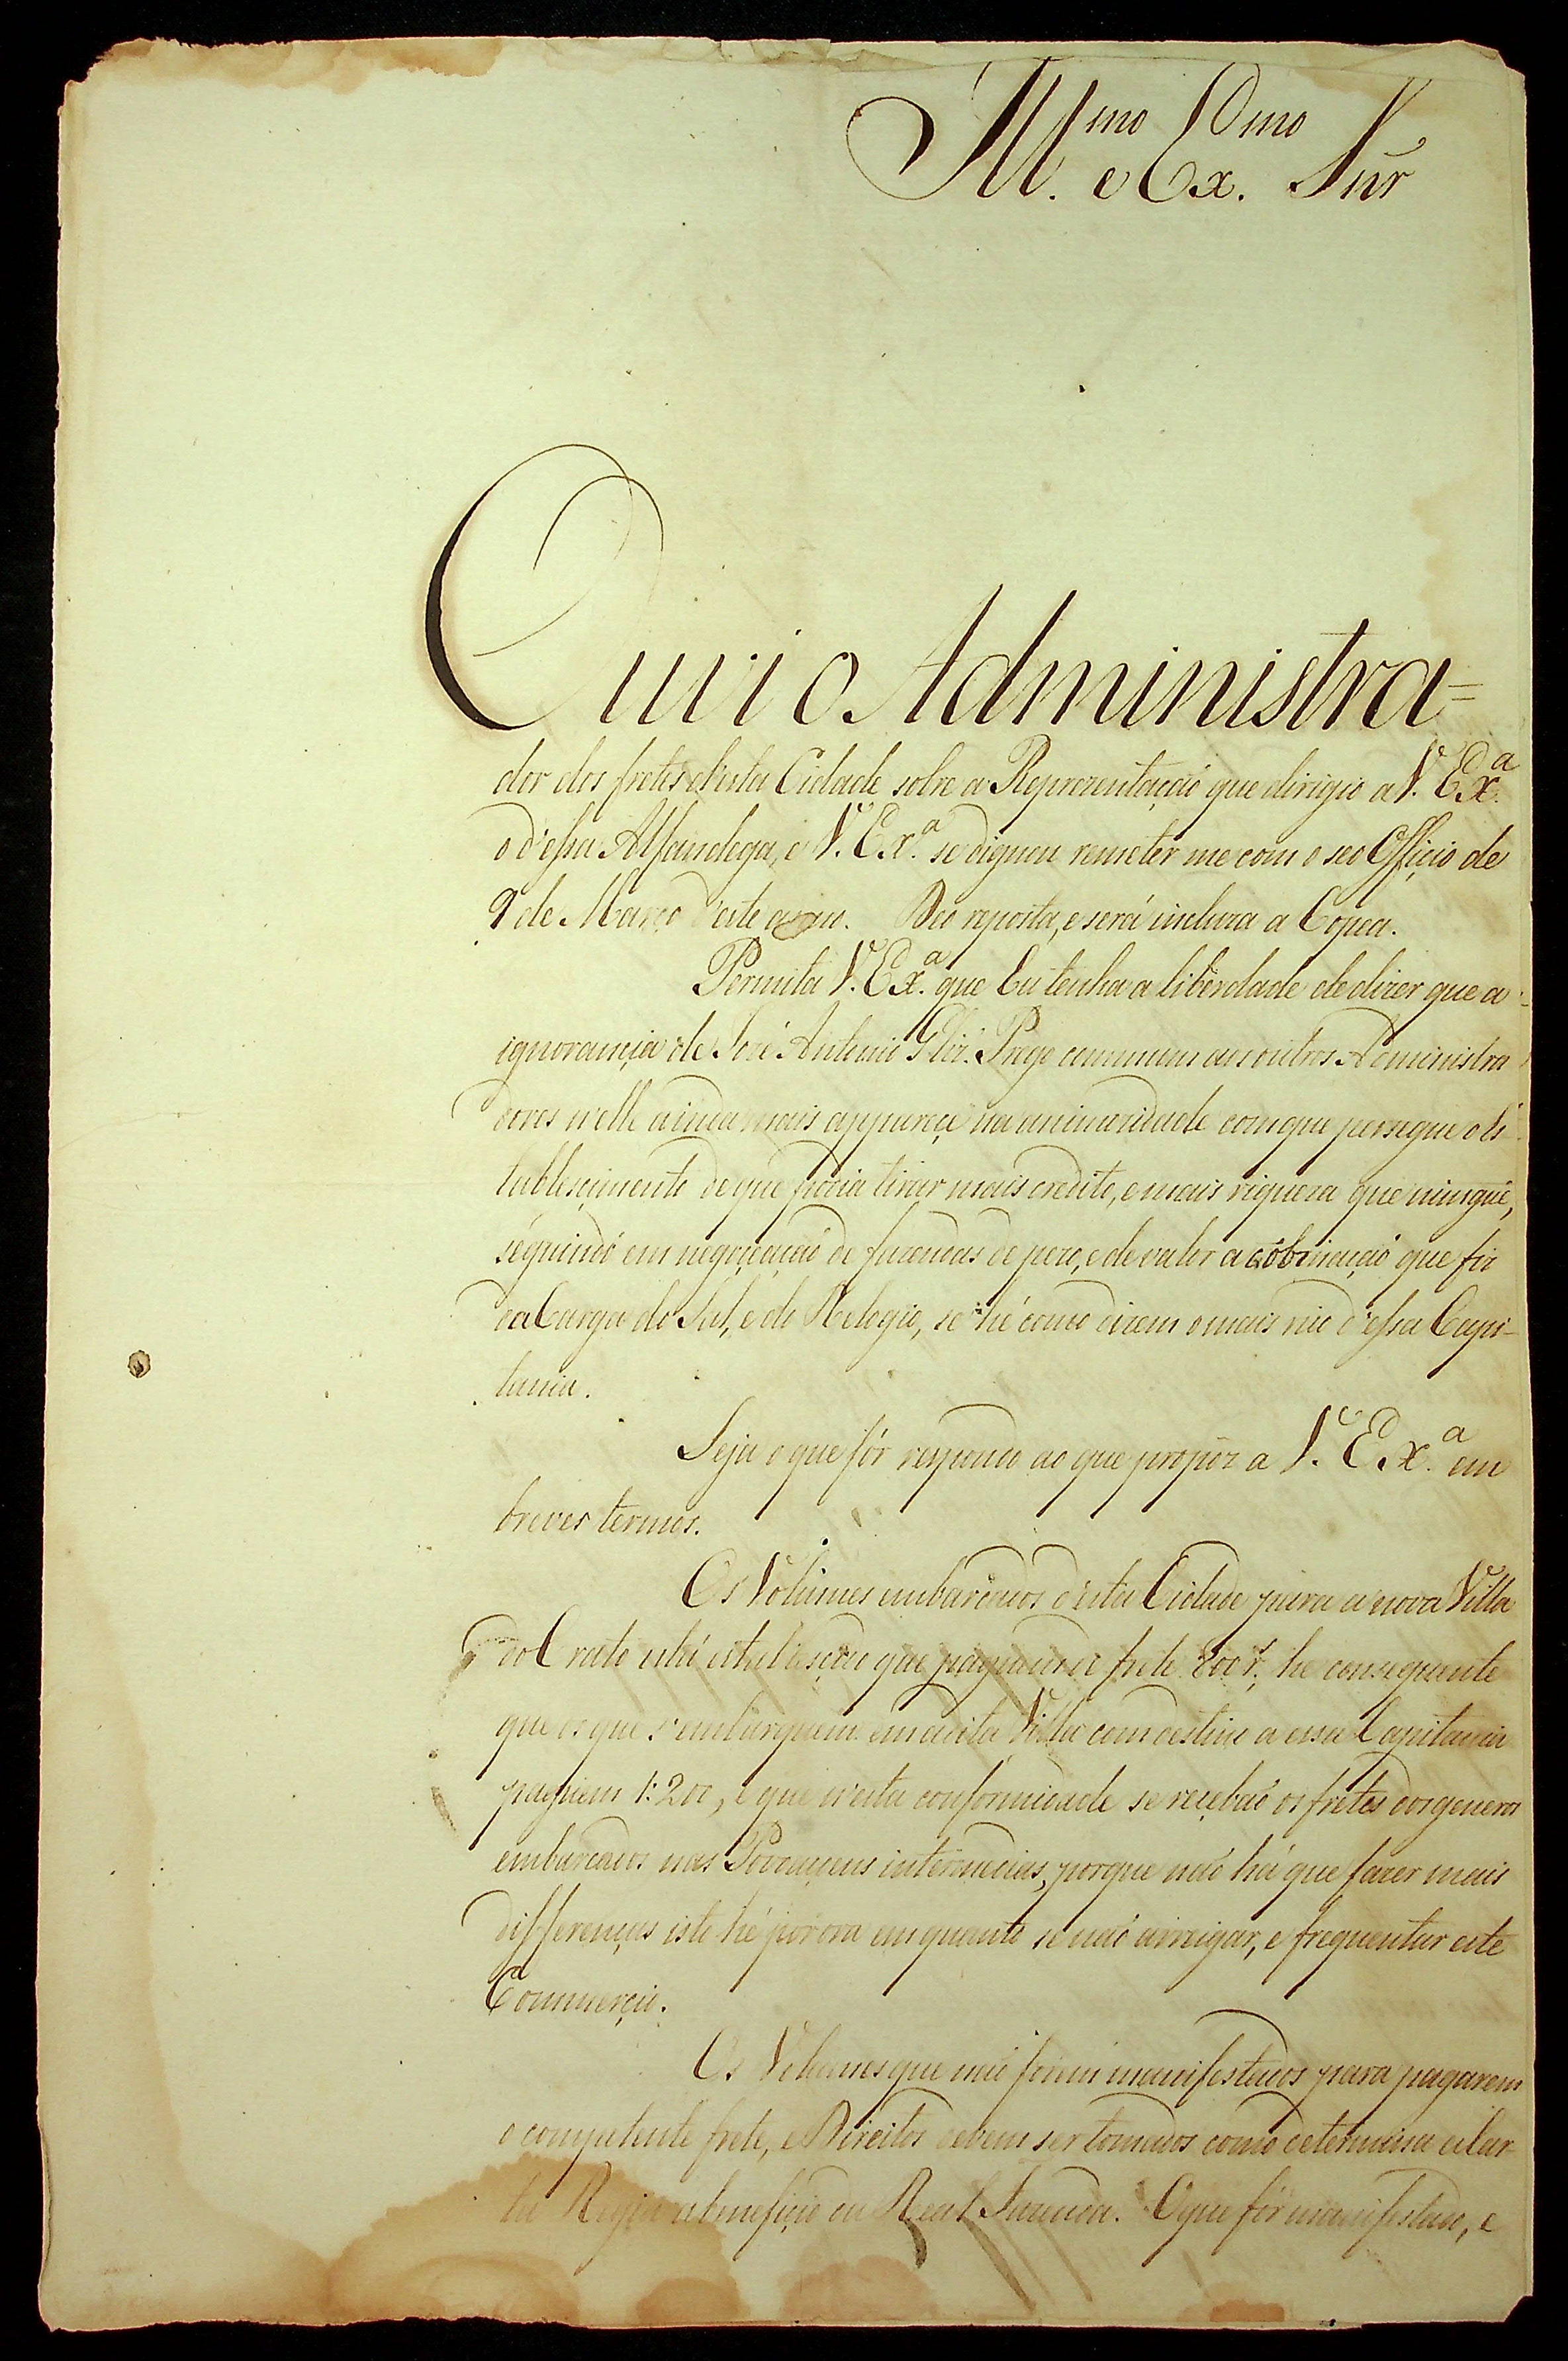 Ill.mo e Ex.mo Snr
Ouvi o Administra=
dor dos fretes d'esta Cidade sobre a Reprezentaçaõ que dirigio a V. Ex.a
o d'essa Alfandega, e V. Ex.a se dignou remeter me com o seo Officio de
9 de Março d'este anno. Deo reposta, e será incluza a Copea.
Permita V. Ex.a que Eu tenha a liberdade de dizer que a
ignorançia de José Antonio Prego commum aos outros Administra
dores n'elle ainda mais appareçe na animozidade com que persegue o Es-
tableçimento de que podia tirar mais credito, e mais riqueza que ninguẽ,
seguindo em negoçiaçaõ de fazendas de pezo, e de valor a cõbinaçaõ que fiz
da Carga do Sal, e do Relogio, se hé como dizem o mais rico d'essa Capi-
tania.
Seja o que fôr respondo ao que propoz a V. Ex.a em
breves termos.
Os Volumes embarcados d'esta Cidade para a nova Villa
do Crato está estableçido que paguem de frete 800 r., he consequente
que os que s'embarquem em a dita Villa com destino a essa Capitania
paguem 1:200, e que n'esta conformidade se reçebaõ os fretes dos generos
embarcados nas Povoaçoens intermedias, porque naõ há que fazer mais
differenças isto hé por ora em quanto se naõ arreigar, e frequentar este
Commerçio.
Os Volumes que naõ forem manifestados para pagarem
o competente frete, e Direitos devem ser tomados como determina a Car-
ta Regia a benefiçio da Real Fazenda. O que fôr manifestado, e